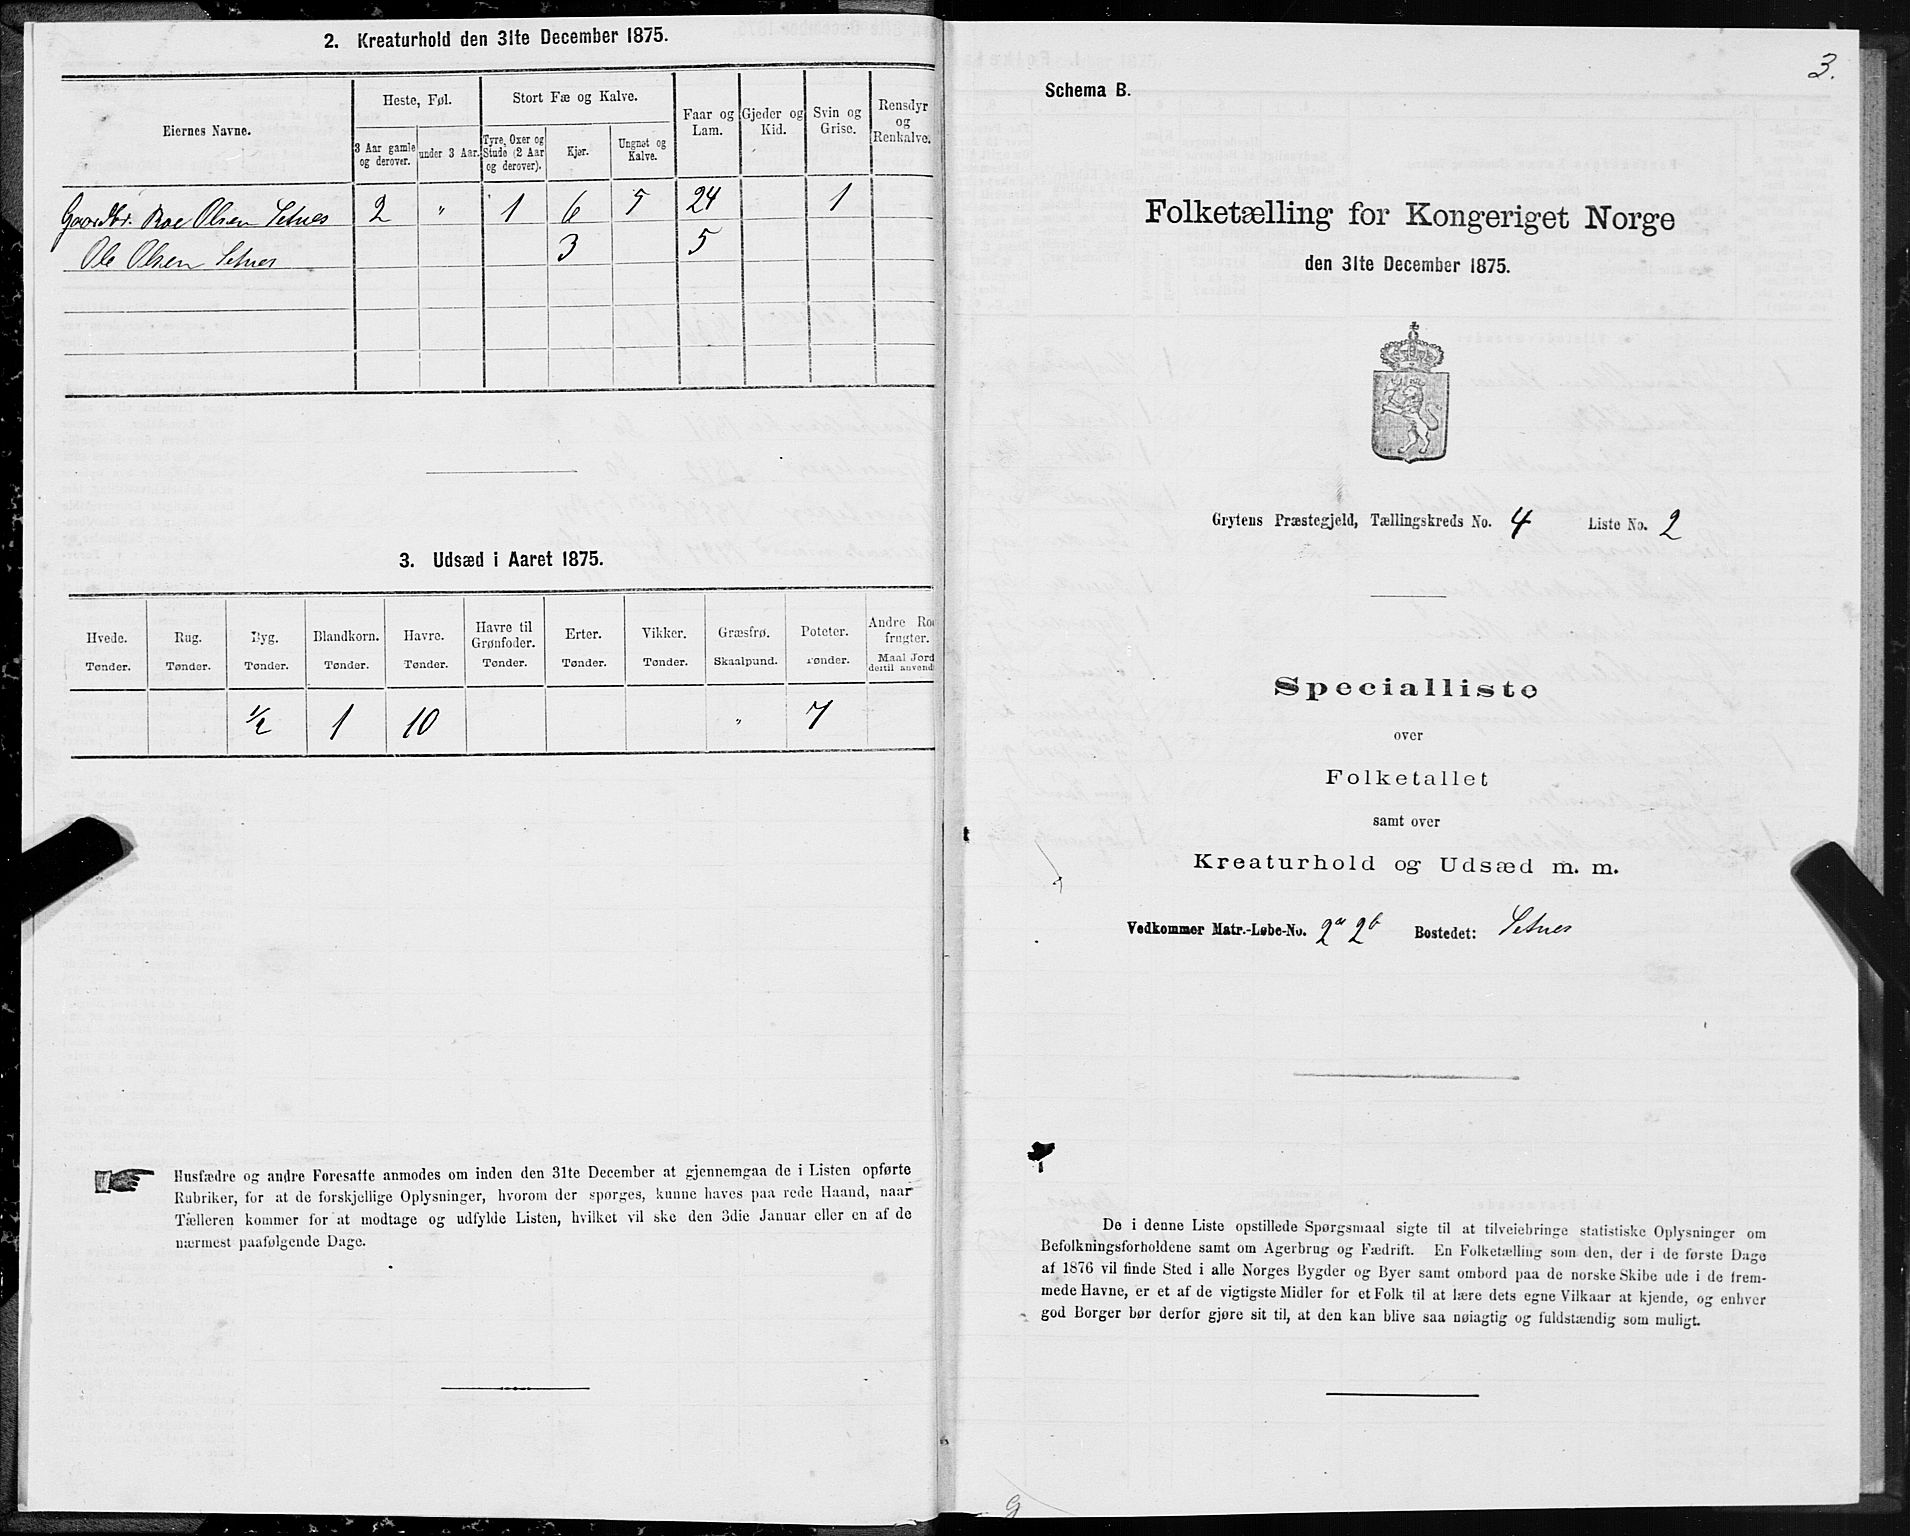 2. Kreaturhold den 31te December 1875.
Eiernes Navne.
Heste, Føl.
Stort Fæ og Kalve.
Faar og Lam.
Gjeder og Kid.
Svin og Grise.
Rensdyr og Renkalve.
3 Aar gamle og derover.
under 3 Aar.
Tyre, Oxer og Stude (2 Aar og derover).
Kjør.
Ungnøt og Kalve.
Gaardbr. Roe Olsen Setnes 2 " 1 6 5 24 1
Ole Olsen Setnes 3 5
3. Udsæd i Aaret 1875.
Hvede. Rug. Byg. Blandkorn. Havre. Havre til Grønfoder. Erter. Vikker. Græsfrø. Poteter. Andre Ro frugter.
Tønder. Tønder. Tønder. Tønder. Tønder. Tønder. Tønder. Tønder. Skaalpund. Tønder. Maal Jord dertil anvend
1/2 1 10 " 7
Husfædre og andre Foresatte anmodes om inden den 31te December at gjennemgaa de i Listen opførte
Rubriker, for at de forskjellige Oplysninger, hvorom der spørges, kunne haves paa rede Haand, naar
Tælleren kommer for at modtage og udfylde Listen, hvilket vil ske den 3die Januar eller en af de
nærmest paafølgende Dage.
3.
Schema B.
Folketælling for Kongeriget Norge
den 31te December 1875.
Grytens Præstegjeld, Tællingskreds No. 4 Liste No. 2
Specialliste
over
Folketallet
samt over
Kreaturhold og Udsæd m. m.
Vedkommer Matr.-Løbe-No. 2a 2b Bostedet: Setnes
De i denne Liste opstillede Spørgsmaal sigte til at tilveiebringe statistiske Oplysninger om
Befolkningsforholdene samt om Agerbrug og Fædrift. En Folketælling som den, der i de første Dage
af 1876 vil finde Sted i alle Norges Bygder og Byer samt ombord paa de norske Skibe ude i de frem-
mede Havne, er et af de vigtigste Midler for et Folk til at lære dets egne Vilkaar at kjende, og enhver
god Borger bør derfor gjøre sit til, at den kan blive saa nøiagtig og fuldstændig som muligt.